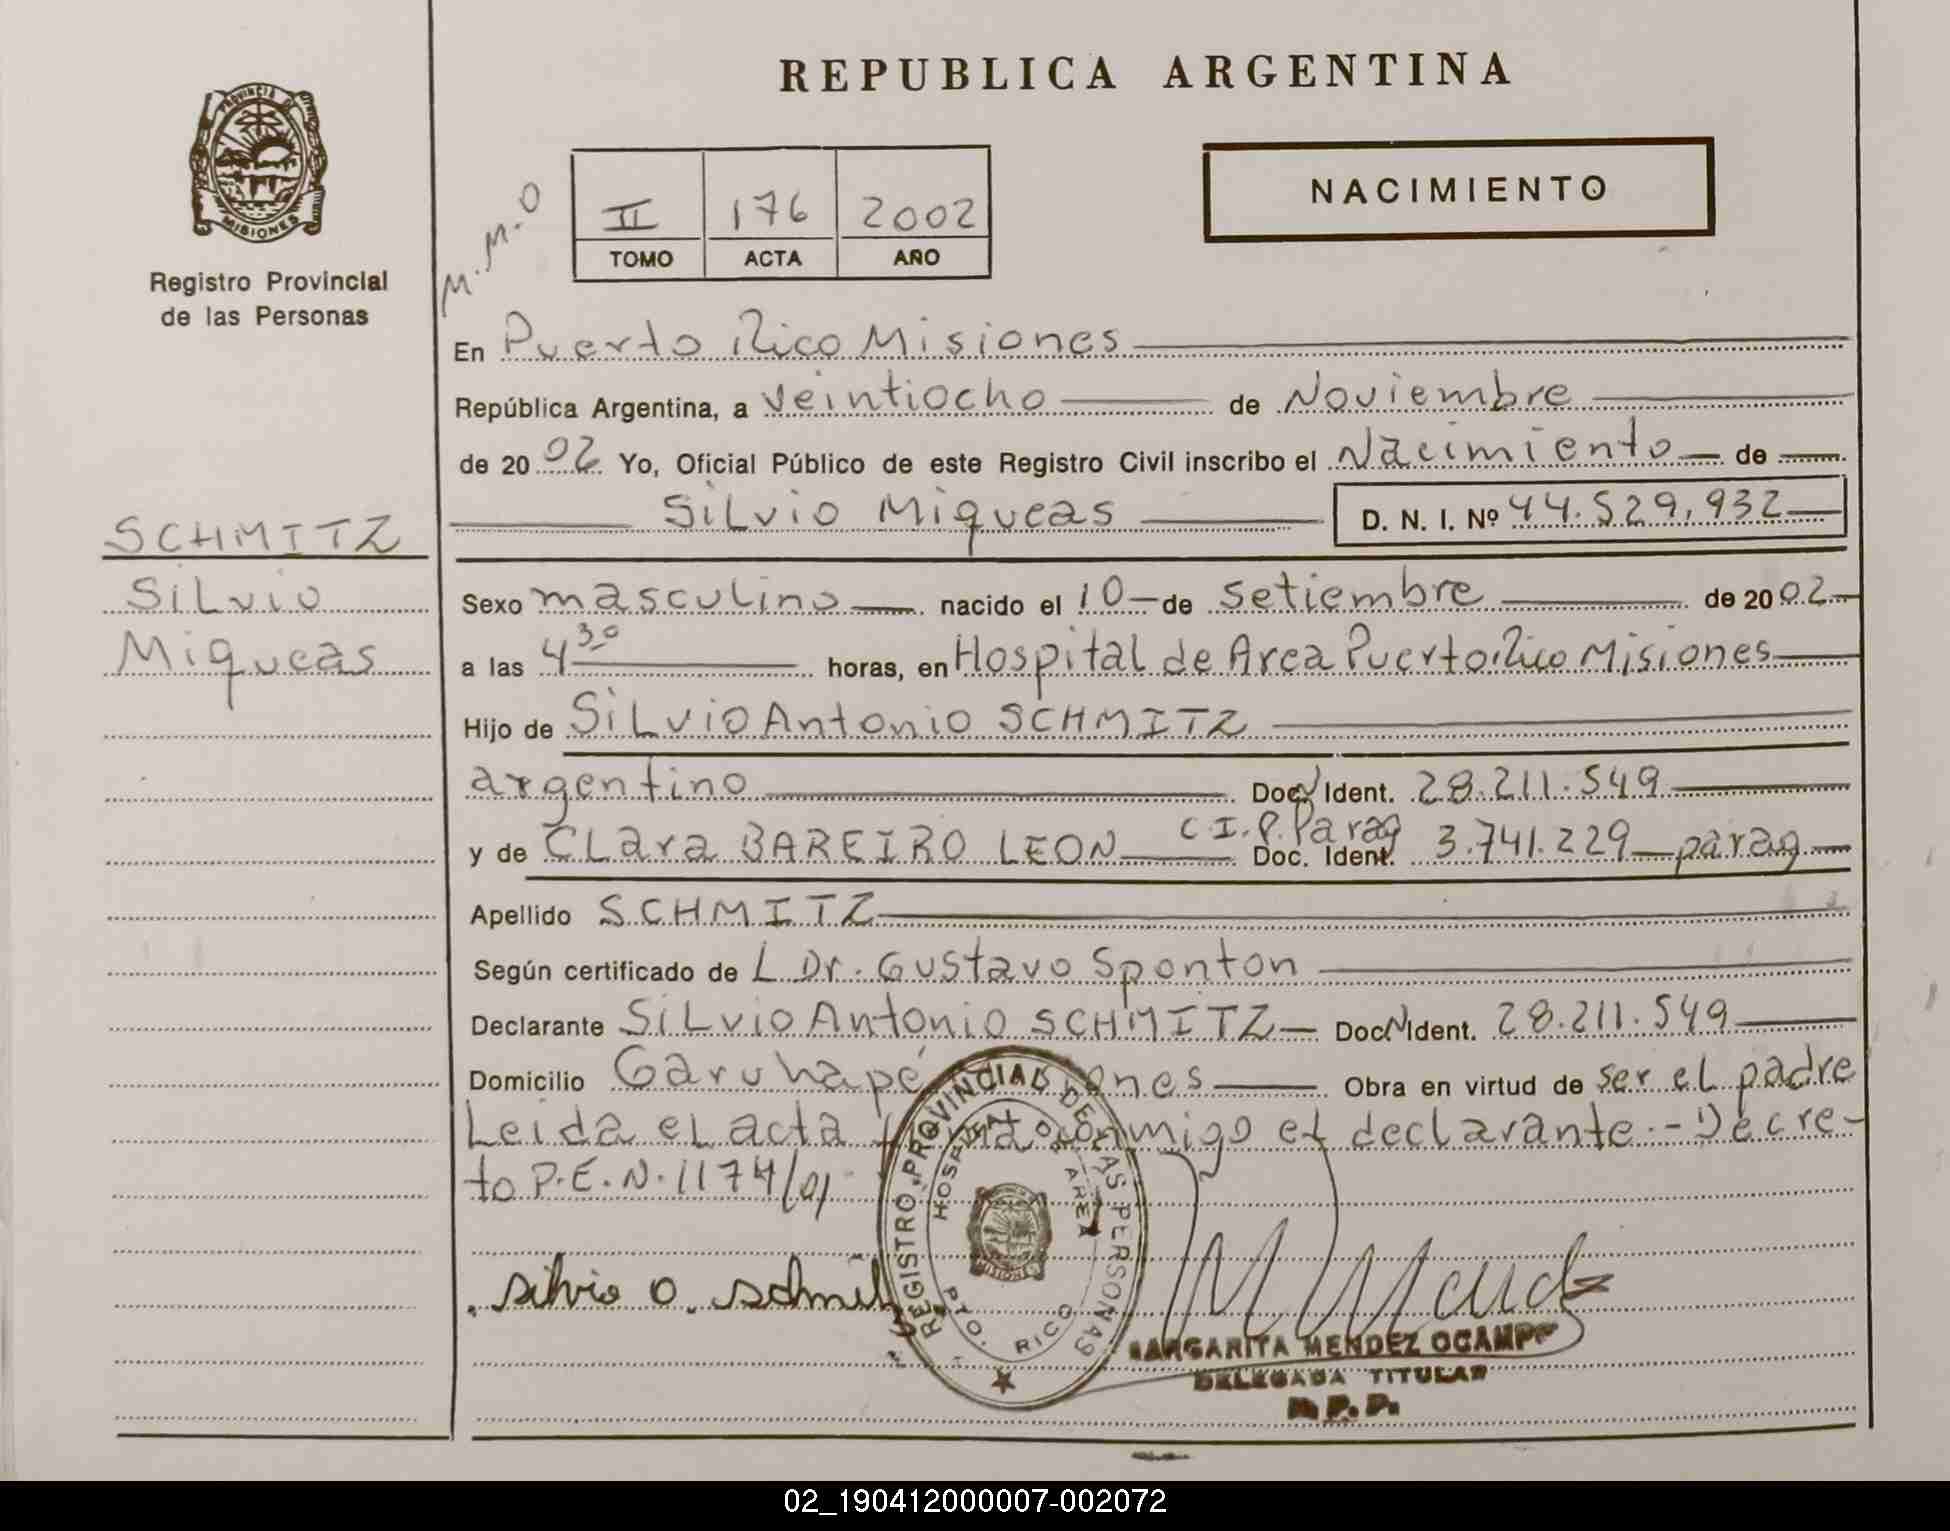 REPUBLICA ARGENTINA
PROVINCIA DE
MISIONES
Registro Provincial
de las Personas
M.M.O
II 176 2002
TOMO ACTA AÑO
NACIMIENTO
En Puerto Rico Misiones
República Argentina, a veintiocho de Noviembre
de 2002 Yo, Oficial Público de este Registro Civil inscribo el Nacimiento de
Silvio Miqueas D. N. I. Nº 44.529.932
SCHMITZ
Silvio
Miqueas
Sexo masculino nacido el 10 de setiembre de 2002
a las 4 30 horas, en Hospital de Area Puerto Rico Misiones
Hijo de Silvio Antonio SCHMITZ
argentino Doc. N Ident. 28.211.549
y de Clara BAREIRO LEON C.I.P. Parag Doc. Ident. 3.741.229 parag
Apellido SCHMITZ
Según certificado de L Dr. Gustavo Sponton
Declarante Silvio Antonio SCHMITZ Doc. N Ident. 28.211.549
Domicilio Garuhapé Obra en virtud de ser el padre
Leida el acta conmigo el declarante.- Decre-
to P.E.N. 1174/01
REGISTRO PROVINCIAL DE LAS PERSONAS
HOSPITAL DE AREA
PTO. RICO
silvio a. schmitz
MARGARITA MENDEZ OCAMPO
DELEGADA TITULAR
R.P.P.
02_190412000007-002072